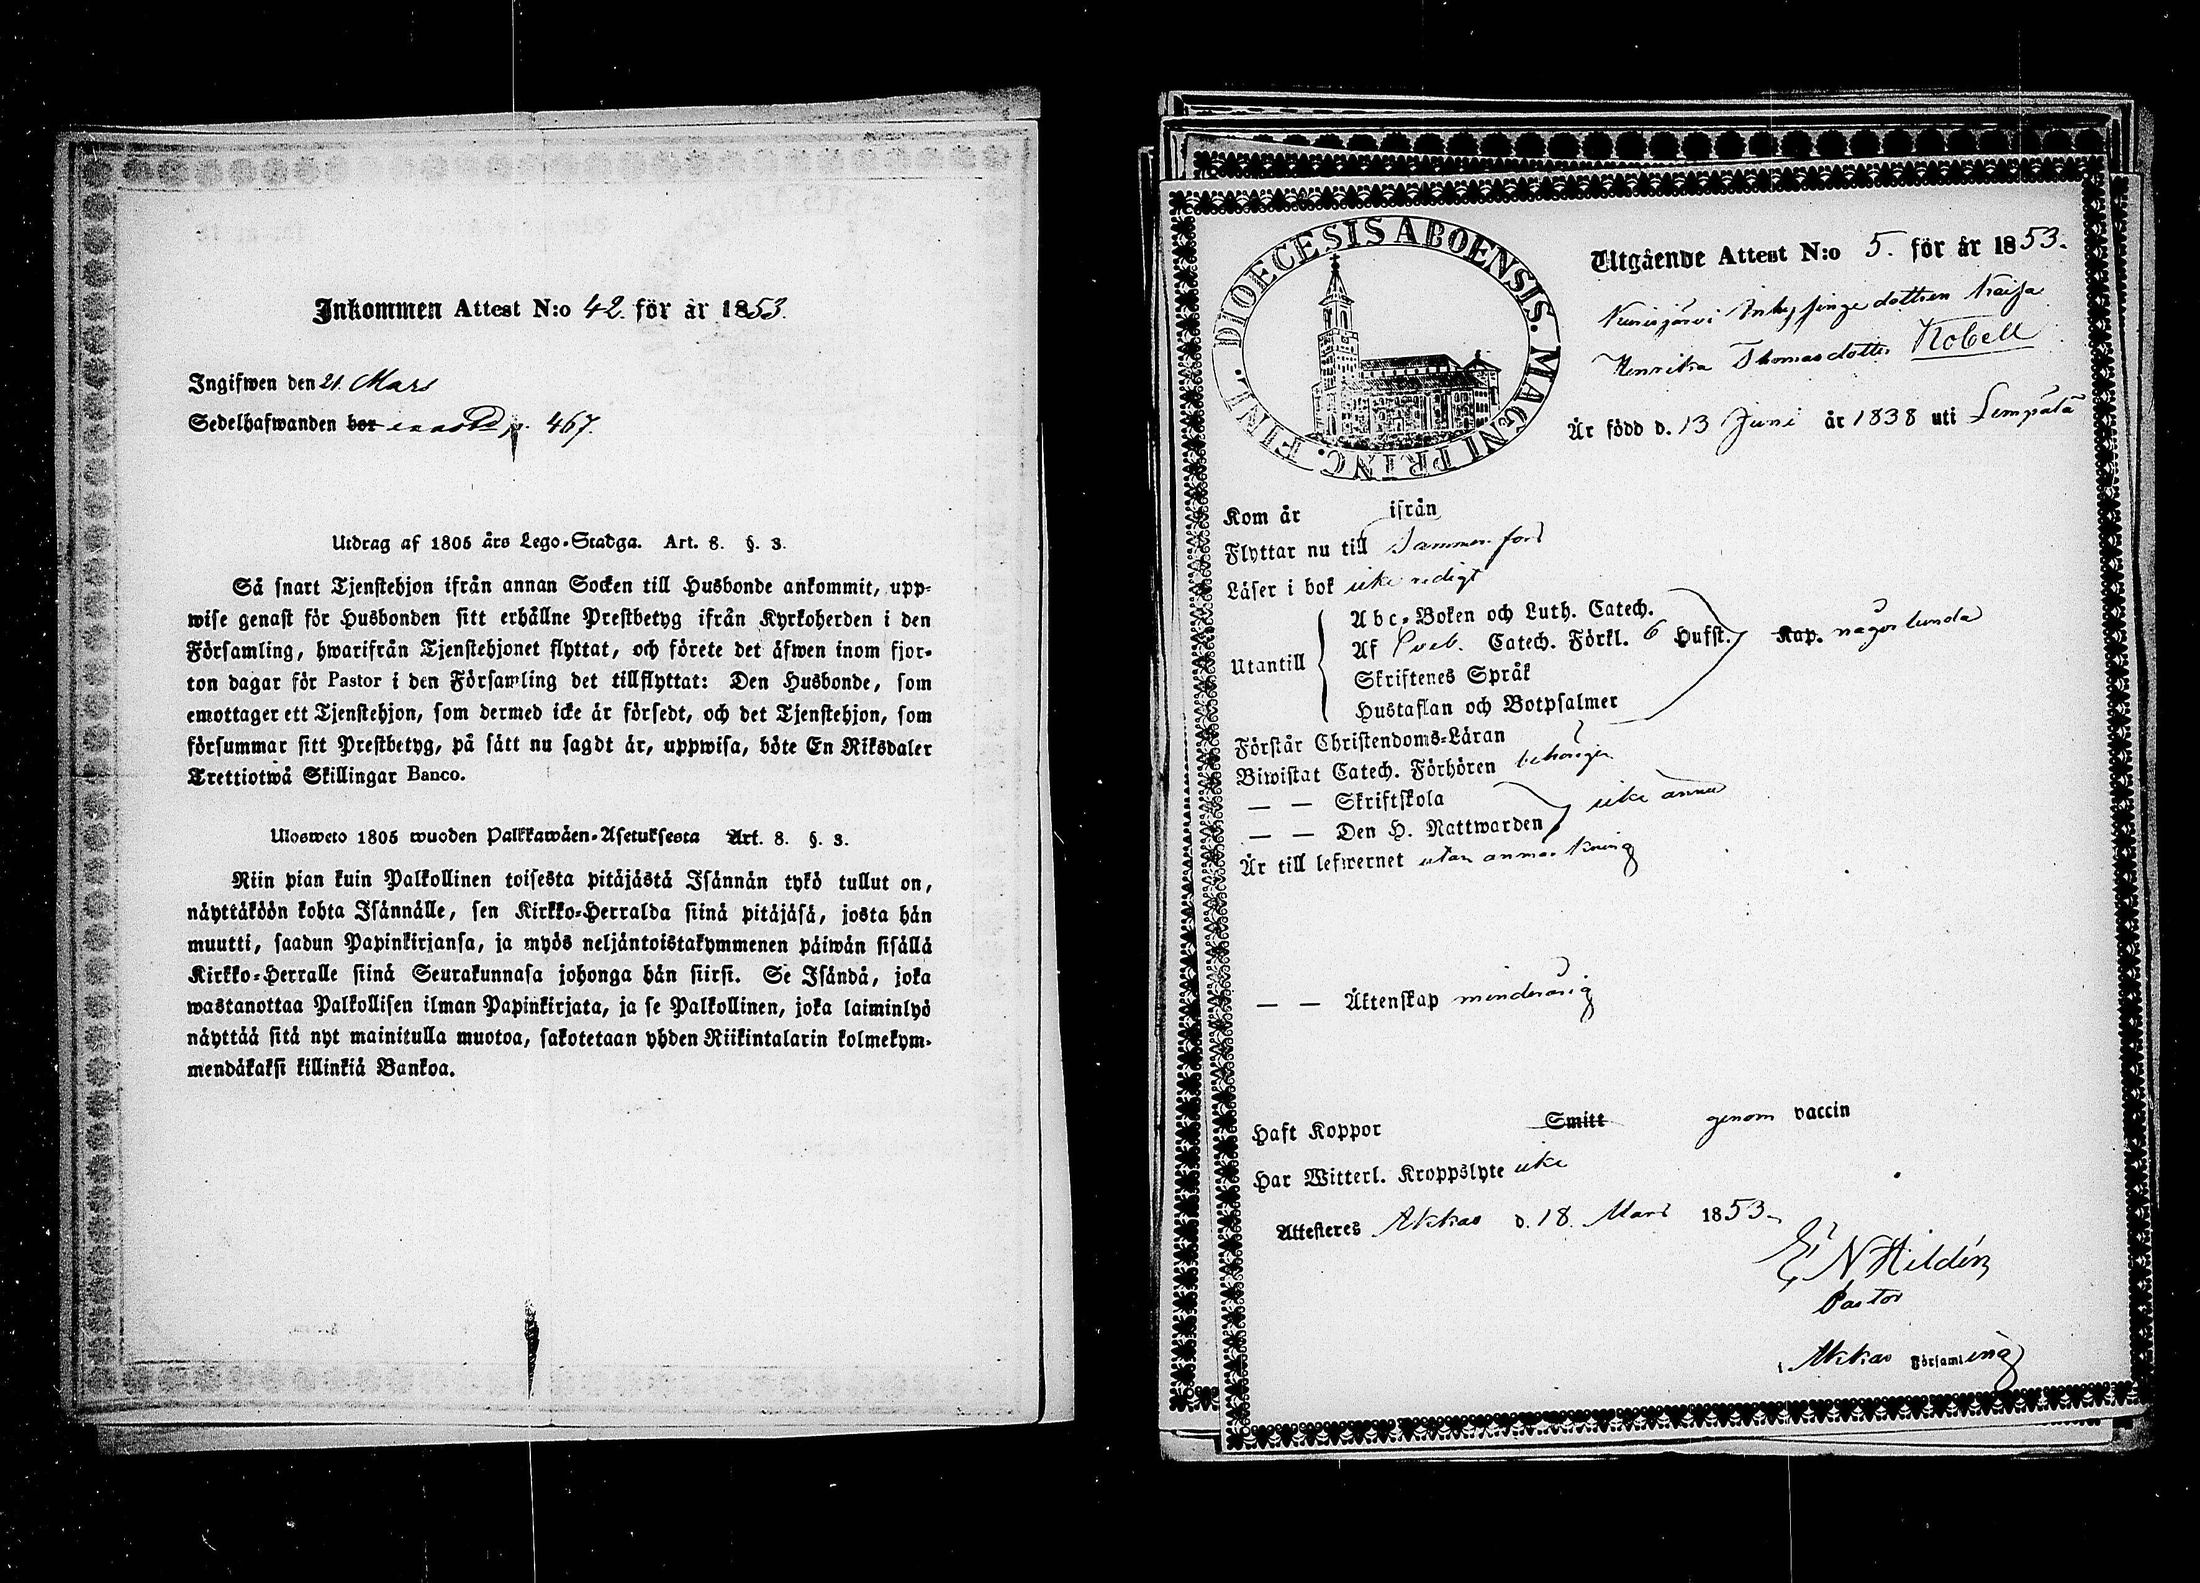 Inkommen Attest N:o 42. för år 1853.
Ingifwen den 21. Mars
Sedelhafwanden bor p. 467.
Utdrag af 1805 års Lego-Stadga. Art. 8. §. 3.
Så snart Tjenstehjon ifrån annan Socken till Husbonde ankommit, upp-
wise genast för Husbonden sitt erhållne Prestbetyg ifrån Kyrkoherden i den
Församling, hwarifrån Tjenstehjonet flyttat, och förete det äfwen inom fjor-
ton dagar för Pastor i den Församling det tillflyttat: Den Husbonde, som
emottager ett Tjenstehjon, som dermed icke är försedt, och det Tjenstehjon, som
försummar sitt Prestbetyg, på sätt nu sagdt är, uppwisa, böte En Riksdaler
Trettiotwå Skillingar Banco.
Ulosweto 1805 wuoden Palkkawäen-Asetuksesta Art. 8. §. 3.
Niin pian kuin Palkollinen toisesta pitäjästä Isännän tykö tullut on,
näyttäköön kohta Isännälle, sen Kirkko-Herralda siinä pitäjäsä, josta hän
muutti, saadun Papinkirjansa, ja myös neljäntoistakymmenen päiwän sisällä
Kirkko-Herralle siinä Seurakunnasa johonga hän siirsi. Se Isändä, joka
wastanottaa Palkollisen ilman Papinkirjata, ja se Palkollinen, joka laiminlyö
näyttää sitä nyt mainitulla muotoa, sakotetaan yhden Riikintalarin kolmekym-
mendäkaksi killinkiä Bankoa.
DIOECESIS ABOENSIS. MAGNI PRINC. FINL.
Utgående Attest N:o 5. för år 1853.
dottren Kaisa
Henrika Thomasdotter Nobell
Är född d. 13 Juni år 1838 uti Lempälä
Kom år ifrån
Flyttar nu till Tammerfors
Läser i bok icke redigt
Utantill
Abc-Boken och Luth. Catech.
Af Sveb. Catech. Förkl. 6 Hufst. Kap. någorlunda
Skriftenes Språk
Hustaflan och Botpsalmer
Förstår Christendoms-Läran
Biwistat Catech. Förhören behörigen
— — Skriftskola icke ännu
— — Den H. Nattwarden
Är till lefwernet utan anmärkning
— — Äktenskap minderårig
Haft Koppor Smitt genom vaccin
Har Witterl. Kroppslyte icke
Attesteres Akkas d. 18. Mars 1853.
N Hildén
Pastor
i Akkas Församling